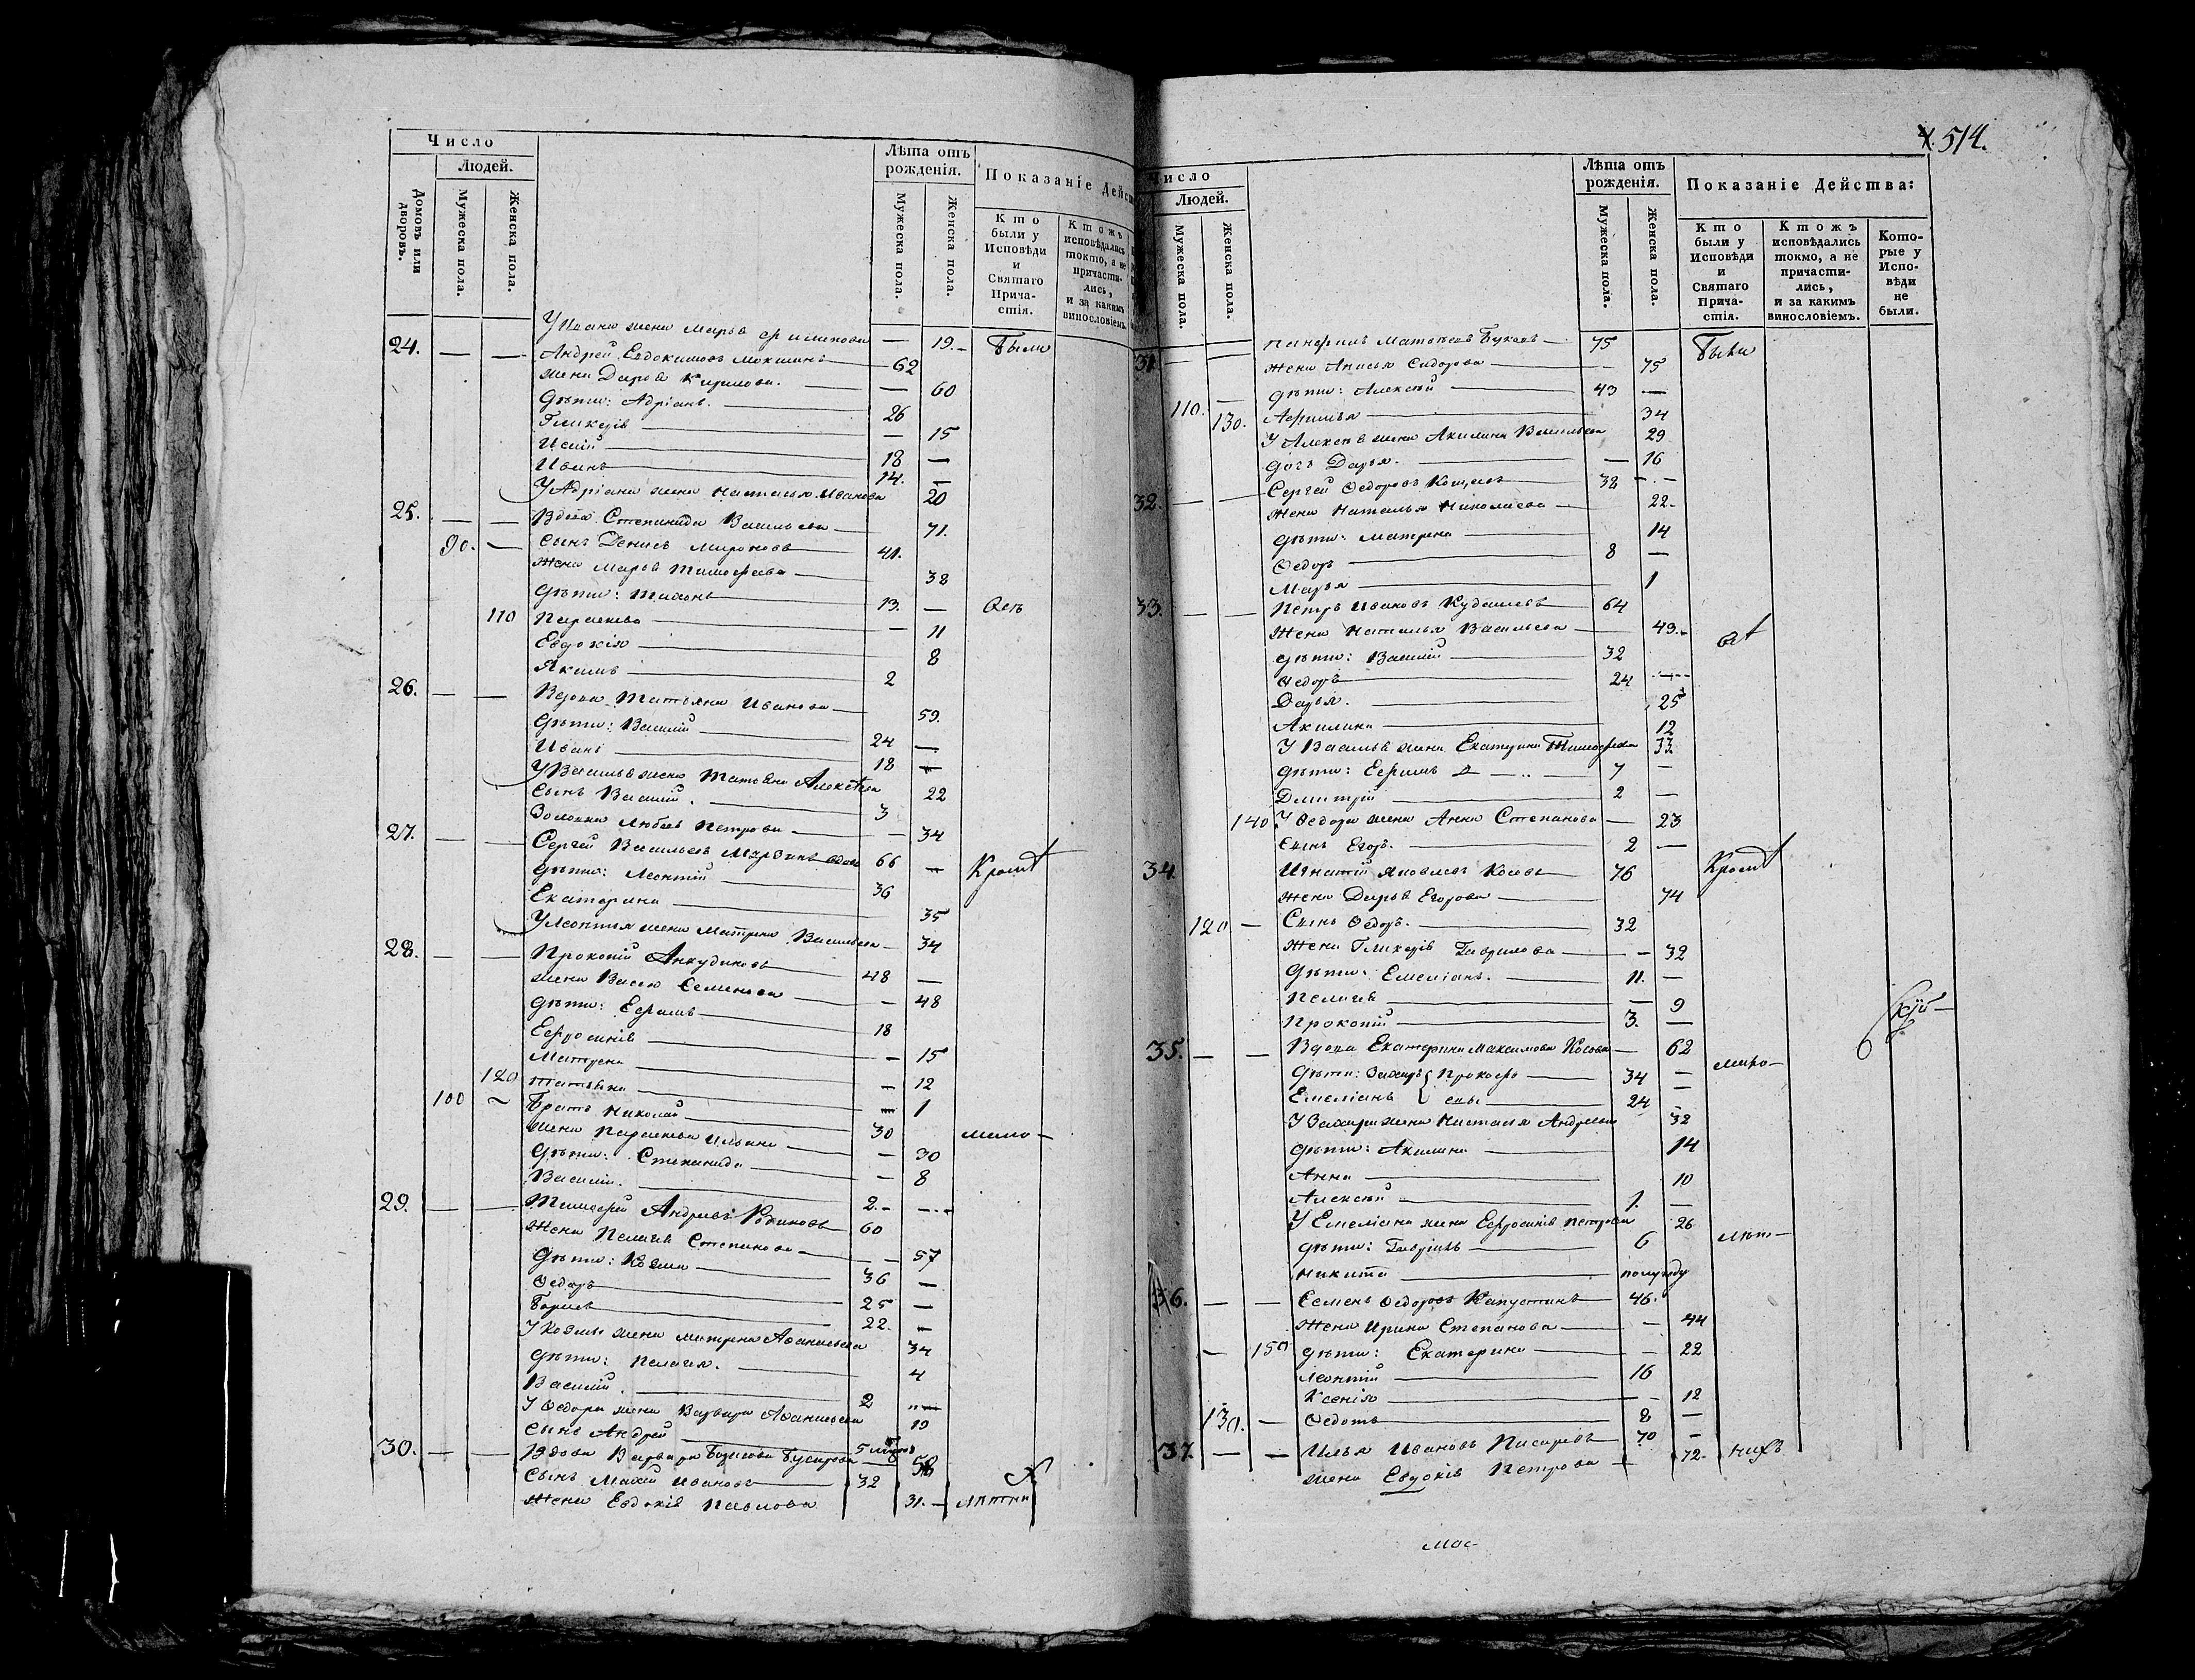 Число
Людей.
Домовъ или дворовъ.
Мужеска пола.
Женска пола.
Лѣта отъ рожденія.
Мужеска пола.
Женска пола.
Показаніе Дейст
Кто были у Исповѣди и Святаго Причастія.
Ктожъ исповѣдались токмо, а не причастились, и за какимъ винословіемъ.
У Ивана жена Марья Филипова — 19. — Были
24. — — Андрей Евдокимовъ — 62
жена Дарья Кирилова. — — 60
дѣти: Адріанъ. — 26
Гликерія — — 15
Исай — 18 —
Иванъ — 14. —
У Адріана жена Настасья Иванова 20
25. — — Вдова Степанида Васильева — 71.
90. — Сынъ Денисъ Мироновъ — 41.
Жена Марья Тимофеева — 38
дѣти: Тихонъ — 13. —
110 Парасковья — — 11
Евдокія — 8
Якимъ — 2
26. — — Вдова Татьяна Иванова — 59.
дѣти: Василій — 24 —
Иванъ — 18 —
У Василья жена Татьяна Алексѣева 22
Сынъ Василій. — 3
Золовка Любовь Петрова — — 34
27. — — Сергей Васильевъ 66 —
дѣти: Леонтій — 36
Екатерина — 35
У Леонтья жена Матрена Васильева — 34
28. — — Прокопій Анкудиновъ — 48 —
жена Васса Семенова — — 48
дѣти: Ефимъ — 18
Ефросинія — — 15
Матрена — — 12
120 Татьяна — — 1
100 Братъ Николай — 30
жена Парасковья Ильина — — 30
дѣти: Степанида — — 8
Василій. — 2. —
29. — — Тимофей Андреевъ Родіоновъ 60
жена Пелагея Степанова — — 57
дѣти: Козма — 36 —
Ѳедоръ — 25 —
Борисъ — 22. —
У Козмы жена Матрена Аѳанасьева 34
дѣти: Пелагея. — 4
Василій. — 2
У Ѳедора жена Варвара Аѳанасьева 19
Сынъ Андрей — 5
30. — — Вдова Варвара Борисова 58
Сынъ Иванова — 32
жена Евдокія Павлова 31. —
514.
Число
Людей.
Мужеска пола.
Женска пола.
Лѣта отъ рожденія.
Мужеска пола.
Женска пола.
Показаніе Действа:
Кто были у Исповѣди и Святаго Причастія.
Ктожъ исповѣдались токмо, а не причастились, и за какимъ винословіемъ.
Которые у Исповѣди не были.
31 — — Панфилъ Матвеевъ — 75 Были
жена Анисья Сидорова — — 75
дѣти: Алексѣй — 43 —
110. 130. Афимья — 34
У Алексея жена Акилина Васильева 29
дочь Дарья. — — 16
32. — — Сергей Ѳедоровъ 38 —
жена Наталья Николаева — 22.
дѣти: Матрена — 14
Ѳедоръ — 8 —
Марья — 1
33. — — Петръ Ивановъ Кудашевъ — 64
жена Наталья Васильева — 43.
дѣти: Василій — 32
Ѳедоръ — 24
Дарья. — 25
Акилина — 12
У Василья жена Екатерина Тимофеева 33
дѣти: Ефимъ — 7 —
Дмитрій — 2 —
140 У Ѳедора жена Анна Степанова — 23
Сынъ Егоръ. — 2 —
34. Игнатій Яковлевъ Косовъ — 76
жена Дарья Егорова — 74
120 — Сынъ Ѳедоръ. — 32
жена Гликерія Гаврилова — — 32
дѣти: Емеліанъ. — 11. —
Пелагея — — 9
Прокопій — 3. —
35. — — Вдова Екатерина Максимова Косова — 62
дѣти: Захаръ — 34 —
Емеліанъ — 24 —
У Захара жена Настасья Андреева 32
дѣти: Акилина — 14
Анна — 10
Алексѣй — 1. —
У Емеліана жена Ефросинія Петрова 26
дѣти: Гаврилъ — 6
Никита — полугоду
36. — — Семенъ Ѳедоровъ Капустинъ — 46.
жена Ирина Степанова — — 44
— 150 дѣти: Екатерина — — 22
Леонтій — 16
Ксенія — — 12
130. — Ѳедотъ — 8 —
37. — — Илья Ивановъ Писаревъ — 70 —
жена Евдокія Петрова — 72. нихъ